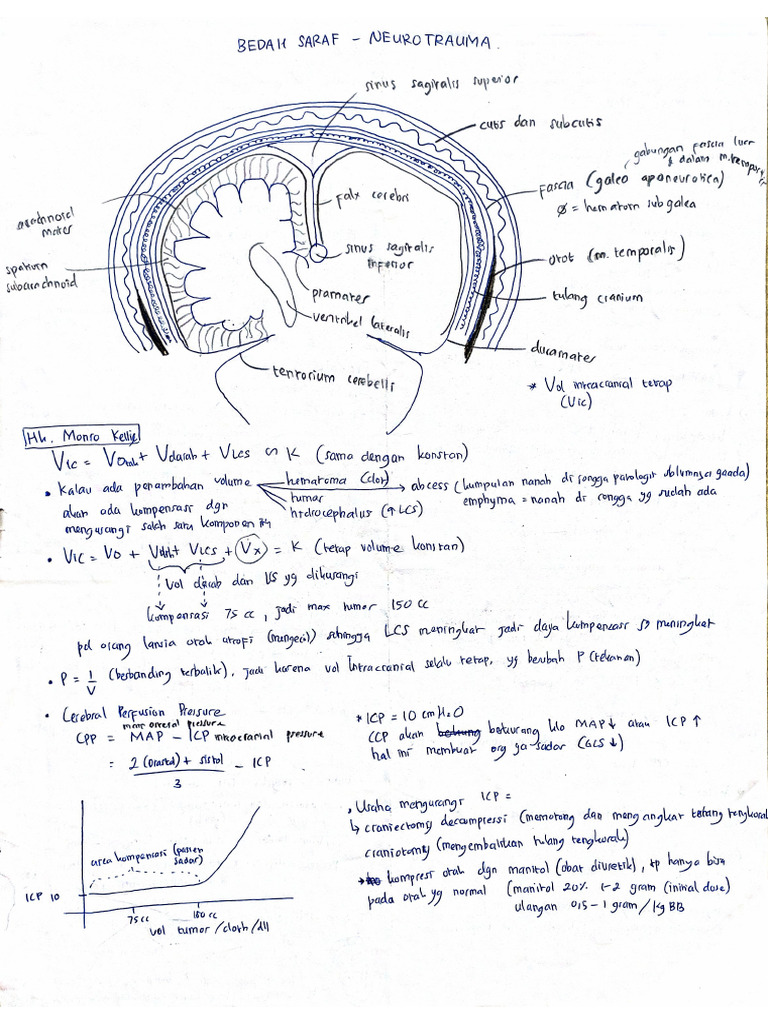 BEDAH SARAF - NEUROTRAUMA.
sinus sagitalis superior
cutis dan subcutis
gabungan fascia luar
& dalam m.temporalis
fascia (galea aponeurotica)
Ø = hematom subgalea
arachnoid
mater
falx cerebri
spatium
subarachnoid
sinus sagitalis
inferior
otot (m. temporalis)
piamater
tulang cranium
ventrikel lateralis
duramater
tentorium cerebelli
* Vol intracranial tetap
(Vic)
Hk. Monro Kellie
VIC = VOtak + Vdarah + VLCS ∽ K (sama dengan konstan)
• Kalau ada penambahan volume
akan ada kompensasi dgn
mengurangi salah satu komponen
hematoma (clot)
tumor
hidrocephalus (↑ LCS)
abcess (kumpulan nanah di rongga patologis sblumnya gaada)
emphyma = nanah di rongga yg sudah ada
• VIC = VO + Vdrh + VLCS + Vx = K (tetap volume konstan)
Vol darah dan LCS yg dikurangi
kompensasi 75 cc, jadi max tumor 150 cc
pd orang lansia otak atrofi (mengecil) sehingga LCS meningkat jadi daya kompensasi meningkat
• P = 1/V (berbanding terbalik), jadi karena vol Intracranial selalu tetap, yg berubah P (tekanan)
• Cerebral Perfusion Pressure
mean arterial pressure
CPP = MAP - ICP intracranial pressure
= 2 (Diastol) + sistol - ICP
3
* ICP = 10 cm H2O
CCP akan berkurang klo MAP↓ atau ICP ↑
hal ini membuat org ga sadar (GCS ↓)
area kompensasi (pasien
sadar)
ICP 10
75 cc
150 cc
vol tumor / cloth / dll
Usaha mengurangi ICP =
↳ craniectomy decompressi (memotong dan mengangkat tulang tengkorak)
craniotomy (mengembalikan tulang tengkorak)
kompresi otak dgn manitol (obat diuretik), tp hanya bisa
pada otak yg normal (manitol 20% 1-2 gram (initial dose)
ulangan 0,5 - 1 gram / kg BB